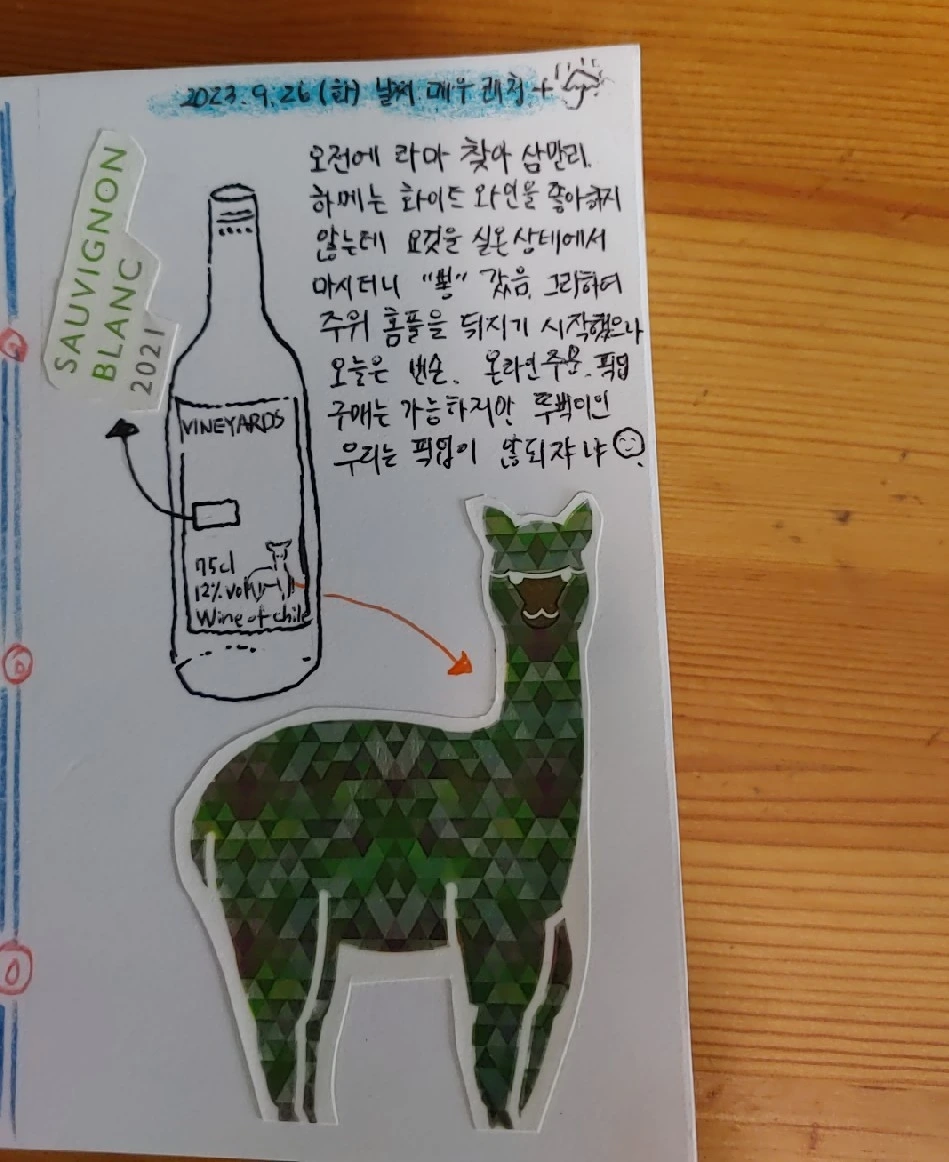 2023.9.26 (화) 날씨 매우 래쳐+
오전에 라마 찾아 삼만리.
하메는 화이트 와인을 좋아하지
않는데 요것을 실온상태에서
마시더니 "뿅" 갔음. 그리하여
주위 홈플을 뒤지기 시작했으나
오늘은 변손. 온라인주문. 픽업
구매는 가능하지만 뚜벅이인
우리는 픽업이 않되쟈나
SAUVIGNON
BLANC
2021
VINEYARDS
75cl
12% vol
Wine of chile